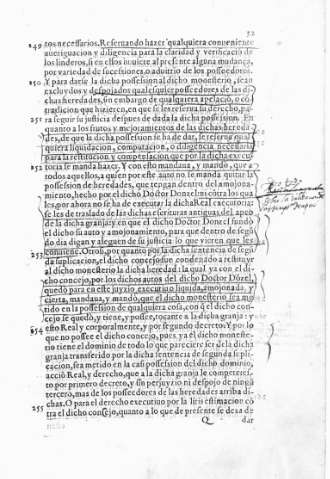 52
249 tos necessarios. Reseruando hazer qualquiera conueniente
aueriguacion y diligencia para la claridad y verificació de
los linderos, si en ellos huuiere al presente alguna mudança,
por variedad de sucessiones, o aduitrio de los posseedores.
250 Y para darse la dicha possession al dicho monesterio, sean
excluydos y despojados qualesquier posseedores de las di
chas heredades, sin embargo de qualquiera apelació, o có
tradicion que hizieren, en que se les reserua su derecho, pa
251 ra seguir su justicia despues de dada la dicha possession. En
quanto a los frutos y mejoramientos de las dichas hereda
des, de que la dicha possession se ha de dar, se reserua qual
quiera liquidacion, computacion, o diligencia necessaria
para la restitucion y compensacion que por la dicha execu
252 toria se manda hazer. Y con esto mandaua, y mandò, que a
todos aquellos, a quien por este auto no le manda quitar la
possession de heredades, que tengan dentro del amojona-
miento, hecho por el dicho Doctor Donzel mi cótra los qua
les, por ahora no se ha de executar la dicha Real executoria:
se les de traslado de las dichas escrituras antiguas del apeo
de la dicha granja, y en que el dicho Doctor Donzel fundò
el dicho su auto y amojonamiento, para que dentro de segú
do dia digan y aleguen de su justicia lo que vieren que les
253 conuiene. Otrosi, por quanto por la dicha sentencia de segú
da suplicacion, el dicho concejo fue condenado a restituyr
al dicho monesterio la dicha heredad: la qual ya con el di-
cho concejo, por los dichos autos del dicho Doctor Dözel,
quedò para en este juyzio, executiuo, liquida, amojonada, y
cierta, mandaua, y mandò, que el dicho monesterio sea me
tido en la possession de qualquiera cosa, con q̃ el dicho con-
cejo se quedò, y tiene, y possee, tocante a la dicha granja: y
254 esto Real y corporalmente, y por segundo decreto: Y por lo
que no possee el dicho concejo, pues ya el dicho moneste-
rio tiene el dominio de todo lo que pareciere ser de la dicha
granja transferido por la dicha sentencia de segunda supli-
cacion, sea metido en la casi possession del dicho dominio,
acció Real, y derecho, que a la dicha granja le compete res-
to por primero decreto, y sin perjuyzio ni despojo de ningú
tercero, mas de los posseedores de las heredades arriba di-
255 chas. O para el derecho executiuo por la litis estimacion có
tra el dicho concejo, quanto a lo que de presente se dexa de
Q dar